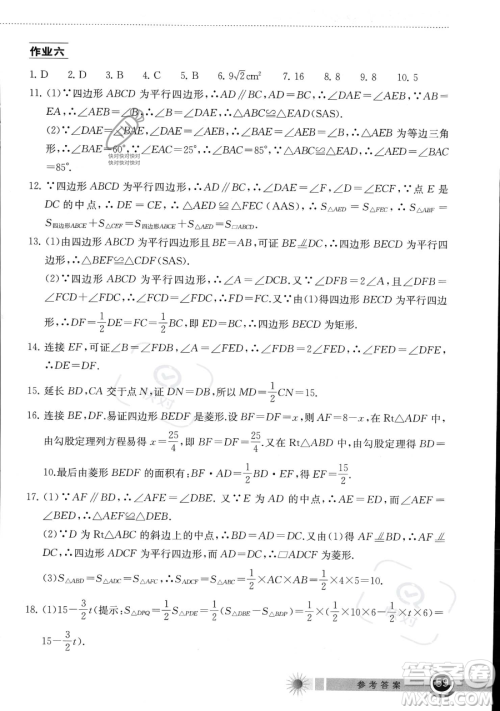 作业六
1. D 2. D 3. B 4. C 5. B 6. 9√2 cm² 7. 16 8. 8 9. 8 10. 5
11. (1)∵四边形 ABCD 为平行四边形,∴AD∥BC,AD=BC,∴∠DAE=∠AEB,∵AB=
EA,∴∠AEB=∠B,∴∠B=∠DAE,∴△ABC≌△EAD(SAS).
(2)∵四边形 ABCD 为平行四边形,∴∠DAE=∠AEB,∵△ABE 为等边三角
形,∴∠BAE=60°,∵∠EAC=25°,∴∠BAC=85°,∵△ABC≌△EAD,∴∠AED=∠BAC
=85°.
快对快对快对
快对快对快对
12. ∵四边形 ABCD 为平行四边形,∴∠DAE=∠CFE,∠ADE=∠ECF,∵点 E 是
DC 的中点,∴DE=CE,∴△AED≌△FEC(AAS),∴S△AED=S△FEC,∴S△ABF=
S四边形ABCE+S△CEF=S四边形ABCE+S△AED=S□ABCD.
13. (1)由四边形 ABCD 为平行四边形和 BE=AB,可证四边形 BECD 为平行四边
形,∴△ABD≌△BEC(SAS).
(2)∵四边形 ABCD 为平行四边形,∴∠A=∠DCB,又∵∠BFD=2∠A,∠BFD=
∠FCD+∠FDC,∴∠A=∠FDC,∴FD=FC,由(1)得四边形 BECD 为平行四边
形,∴DF=1/2DE=FC=1/2BC,即 DE=BC,∴四边形 BECD 为矩形.
14. 连接 EF,可证∠B=∠DFE=∠D,∴CF=CD.
15. 延长 BD,CA 交于点 N,证 DN=DB,所以 MD=1/2CN=10.
16. 连接 BE,DF.易证四边形 BEDF 是菱形,设 BF=DF=x,所以 AF=8-x,在 Rt△ABF 中,
由勾股定理列方程易得 x=25/4,即 BF=DF=25/4.又在 Rt△ABD 中,由勾股定理,BD=
10.最后由菱形 BEDF 的面积有:BF·AB=1/2BD·EF,∴EF=15/2.
17. (1)∵AF∥BC,∴∠AFE=∠DBE.又∵∠AEF=∠DEB,AE=ED,∴△AEF≌
△DBE.
(2)∵D 为 Rt△ABC 的斜边上的中点,∴AD=DC=DB.由(1)得 AF≌BD,∴AF≌
DC,∴四边形 ADCF 为平行四边形,而 AD=DC,∴□ADCF 为菱形.
(3)S△ABD=S△ADC=S△AFC,∴S四边形ADCF=S△ABC=1/2×AC×AB=1/2×4×5=10.
18. (1)15-3/2t(提示:S△DPQ=S△PDE-S△QDE=1/2×(1/2×10×6-1/2t×6)=
15-3/2t).
参考答案